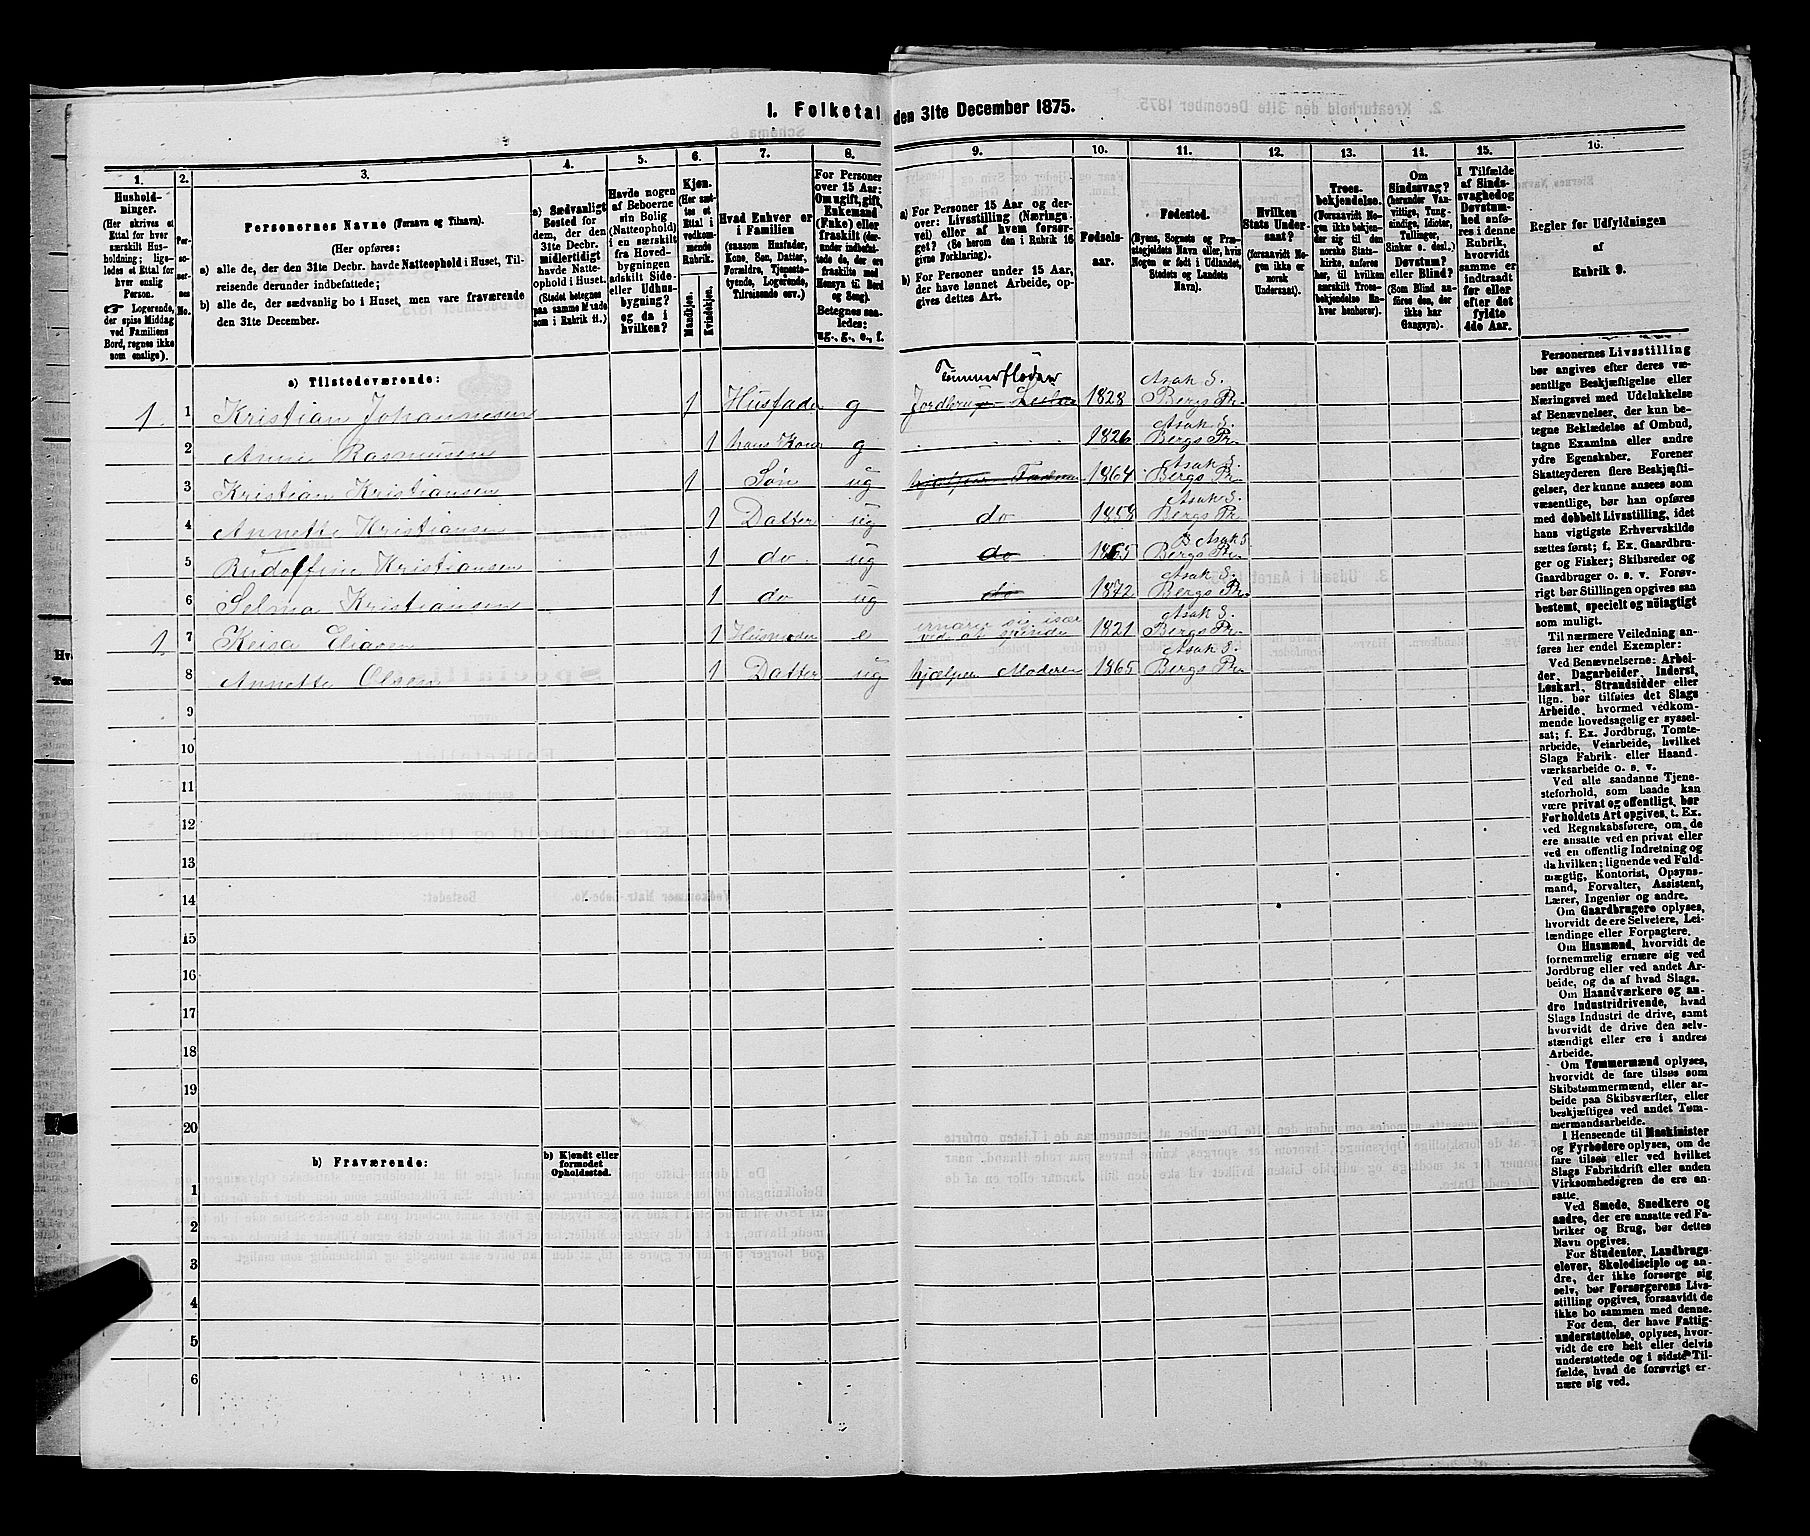 I. Folketal den 31te December 1875.
1. 2. 3. 4. 5. 6. 7. 8. 9. 10. 11. 12. 13. 14. 15. 16.
Hushold-
ninger.
(Her skrives et
Ettal for hver
særskilt Hus-
holdning; lige-
ledes et Ettal for
hver enslig
Person.
☞ Logerende,
der spise Middag
ved Familiens
Bord, regnes ikke
som enslige).
Per-
so-
ner-
nes
No.
Personernes Navne (Fornavn og Tilnavn).
(Her opføres:
a) alle de, der den 31te Decbr. havde Natteophold i Huset, Til-
reisende derunder indbefattede;
b) alle de, der sædvanlig bo i Huset, men vare fraværende
den 31te December.
a) Sædvanligt
Bosted for
dem, der den
31te Decbr.
midlertidigt
havde Natte-
ophold i Huset.
(Stedet betegnes
paa samme Maade
som i Rubrik 11.)
Havde nogen
af Beboerne
sin Bolig
(Natteophold)
i en særskilt
fra Hoved-
bygningen
adskilt Side-
eller Udhus-
bygning?
og da i
hvilken?
Kjøn.
(Her sæt-
tes et
Ettal i
vedkom-
mende
Rubrik.
Mandkjøn.
Kvindekjøn.
Hvad Enhver er
i Familien
(saasom Husfader,
Kone, Søn, Datter,
Forældre, Tjeneste-
tyende, Logerende,
Tilreisende osv.)
For Personer
over 15 Aar:
Om ugift, gift,
Enkemand
(Enke) eller
fraskilt (der-
under indbefat-
tede de, der ere
fraskilte med
Hensyn til Bord
og Seng).
Betegnes saa-
ledes:
ug., g., e., f.
a) For Personer 15 Aar og der-
over: Livsstilling (Nærings-
vei) eller af hvem forsør-
get? (Se herom den i Rubrik 16
givne Forklaring).
b) For Personer under 15 Aar,
der have lønnet Arbeide, op-
gives dettes Art.
Fødsels-
aar.
Fødested.
(Byens, Sognets og Præ-
stegjeldets Navn eller, hvis
Nogen er født i Udlandet,
Stedets og Landets
Navn).
Hvilken
Stats Under-
saat?
(forsaavidt No-
gen ikke er
norsk
Undersaat).
Troes-
bekjendelse.
(Forsaavidt No-
gen ikke bekjen-
der sig til den
norske Stats-
kirke, anføres
her, til hvilken
særskilt Troes-
bekjendelse En-
hver henhører).
Om
Sindssvag?
(herunder Van-
vittige, Tung-
sindige, Idioter,
Tullinger,
Sinker o. desl.)
Døvstum?
eller Blind?
(Som Blind an-
føres den, der
ikke har
Gangsyn).
I Tilfælde
af Sinds-
svaghed og
Døvstum-
hed anfø-
res i denne
Rubrik,
hvorvidt
samme er
indtraadt
før eller
efter det
fyldte
4de Aar.
Regler for Udfyldningen
af
Rubrik 9.
a) Tilstedeværende:
1 1 Kristian Johannesen 1 Husfader g Tømmerfløder Jordbrug 1828 Asak S. Bergs Pr.
2 Anne Rasmusen 1 hans Kone g 1826 Asak S. Bergs Pr.
3 Kristian Kristiansen 1 Søn ug 1864 Asak S. Bergs Pr.
4 Annette Kristiansen 1 Datter ug do 1858 Asak S. Bergs Pr.
5 Rudolfine Kristiansen 1 do ug do 1865 Asak S. Bergs Pr.
6 Selma Kristiansen 1 do ug do 1872 Asak S. Bergs Pr.
1 7 Keisa Eliasen 1 Husmoder e ernærer sig især ved at spinde 1821 Asak S. Bergs Pr.
8 Annette Olsen 1 Datter ug hjælper Moderen 1865 Asak S. Bergs Pr.
9
10
11
12
13
14
15
16
17
18
19
20
b) Fraværende:
b) Kjendt eller
formodet
Opholdssted.
1
2
3
4
5
6
Personernes Livsstilling
bør angives efter deres væ-
sentlige Beskjæftigelse eller
Næringsvei med Udelukkelse
af Benævnelser, der kun be-
tegne Beklædelse af Ombud,
tagne Examina eller andre
ydre Egenskaber. Forener
Skatteyderen flere Beskjæfti-
gelser, der kunne ansees som
væsentlige, bør han opføres
med dobbelt Livsstilling, idet
hans vigtigste Erhvervskilde
sættes først; f. Ex. Gaardbru-
ger og Fisker; Skibsreder og
Gaardbruger o. s. v. Forøv-
rigt bør Stillingen opgives saa
bestemt, specielt og nøiagtigt
som muligt.
Til nærmere Veiledning an-
føres her endel Exempler:
Ved Benævnelserne: Arbei-
der, Dagarbeider, Inderst,
Løskarl, Strandsidder eller
lign. bør tilføies det Slags
Arbeide, hvormed vedkom-
mende hovedsagelig er syssel-
sat; f. Ex. Jordbrug, Tomte-
arbeide, Veiarbeide, hvilket
Slags Fabrik- eller Haand-
værksarbeide o. s. v.
Ved alle saadanne Tjene-
steforhold, som baade kan
være privat og offentligt, bør
Forholdets Art opgives, t. Ex.
ved Regnskabsførere, om de
ere ansatte ved en privat eller
ved en offentlig Indretning og
da hvilken; lignende ved Fuld-
mægtig, Kontorist, Opsyns-
mand, Forvalter, Assistent,
Lærer, Ingeniør og andre.
Om Gaardbrugere oplyses,
hvorvidt de ere Selveiere, Lei-
lændinge eller Forpagtere.
Om Husmænd, hvorvidt de
fornemmelig ernære sig ved
Jordbrug eller ved andet Ar-
beide, og da af hvad Slags.
Om Haandværkere og an-
dre Industridrivende, hvad
Slags Industri de drive, samt
hvorvidt de drive den selv-
stændigt eller ere i andres
Arbeide.
Om Tømmermænd oplyses,
hvorvidt de fare tilsøs som
Skibstømmermænd, eller ar-
beide paa Skibsværfter, eller
beskjæftiges ved andet Tøm-
mermandsarbeide.
I Henseende til Maskinister
og Fyrbødere oplyses, om de
fare tilsøs eller ved hvilket
Slags Fabrikdrift eller anden
Virksomhedsgren de ere an-
satte.
Ved Smede, Snedkere og
andre, der ere ansatte ved Fa-
briker og Brug, bør dettes
Navn opgives.
For Studenter, Landbrugs-
elever, Skoledisciple og an-
dre, der ikke forsørge sig
selv, bør Forsørgerens Livs-
stilling opgives, forsaavidt de
ikke bo sammen med denne.
For dem, der have Fattig-
understøttelse, oplyses, hvor-
vidt de ere helt eller delvis
understøttede og i sidste Til-
fælde, hvad de forøvrigt er-
nære sig ved.